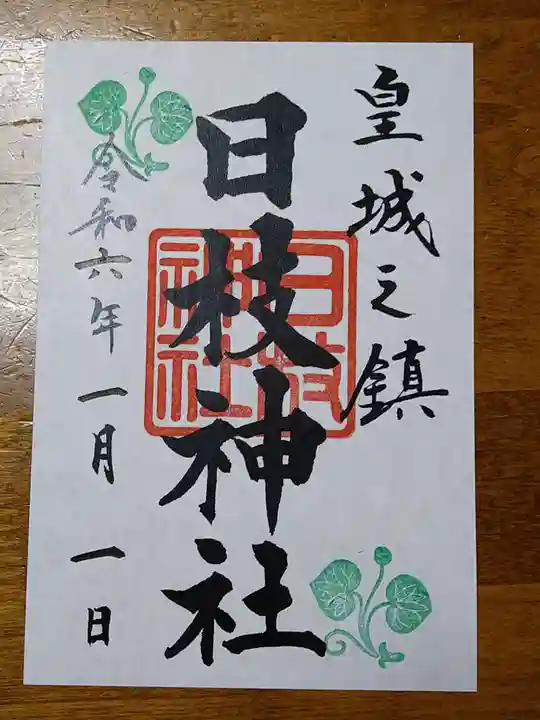 皇城之鎮
日枝神社
日枝
神社
令和六年一月一日